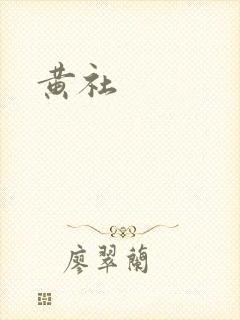 黄社
廖翠蘭